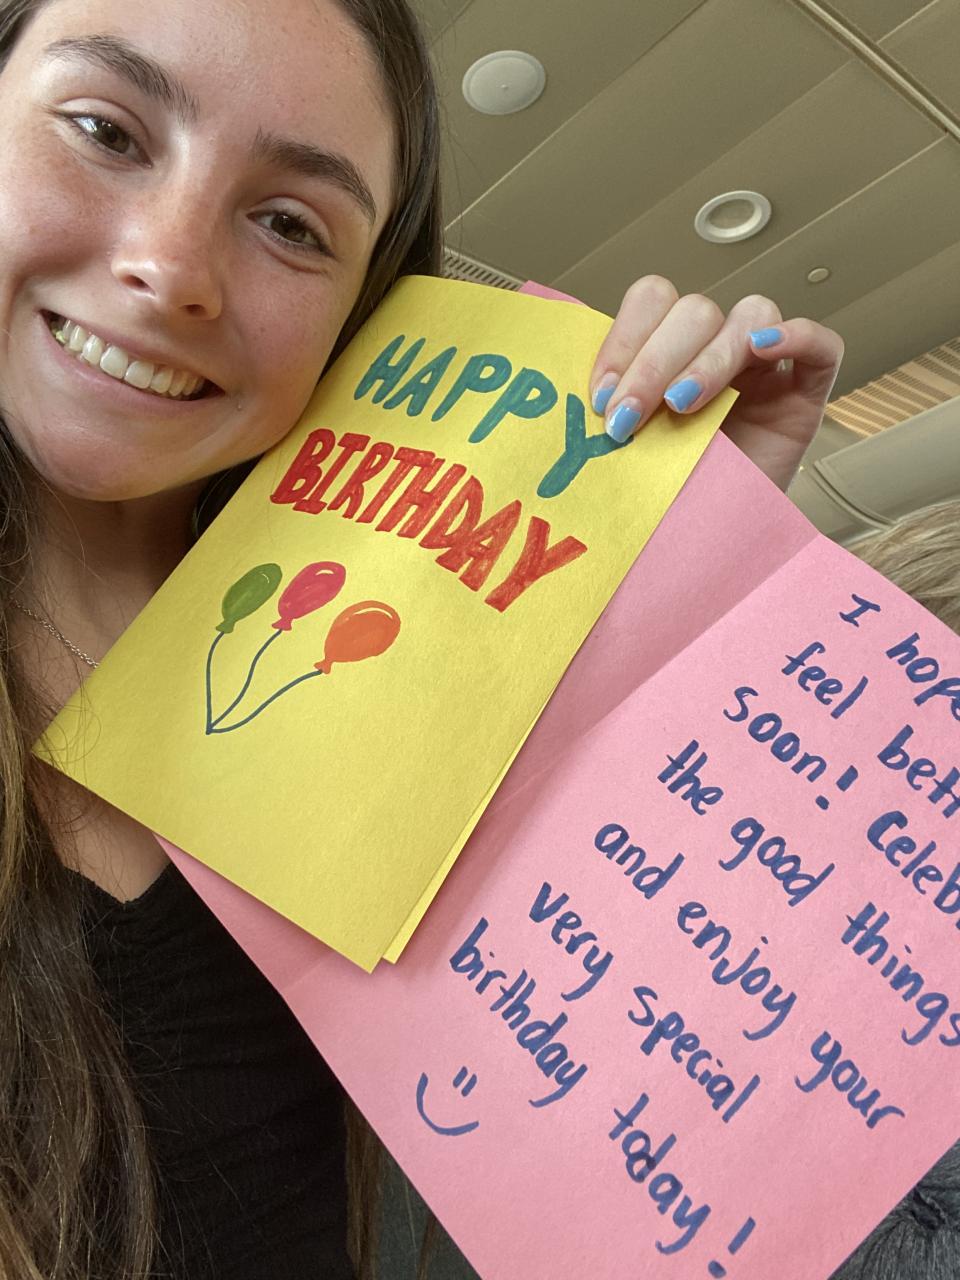 HAPPY
BIRTHDAY
I hope
feel bett
soon! Celeb
the good things
and enjoy your
very special
birthday today!